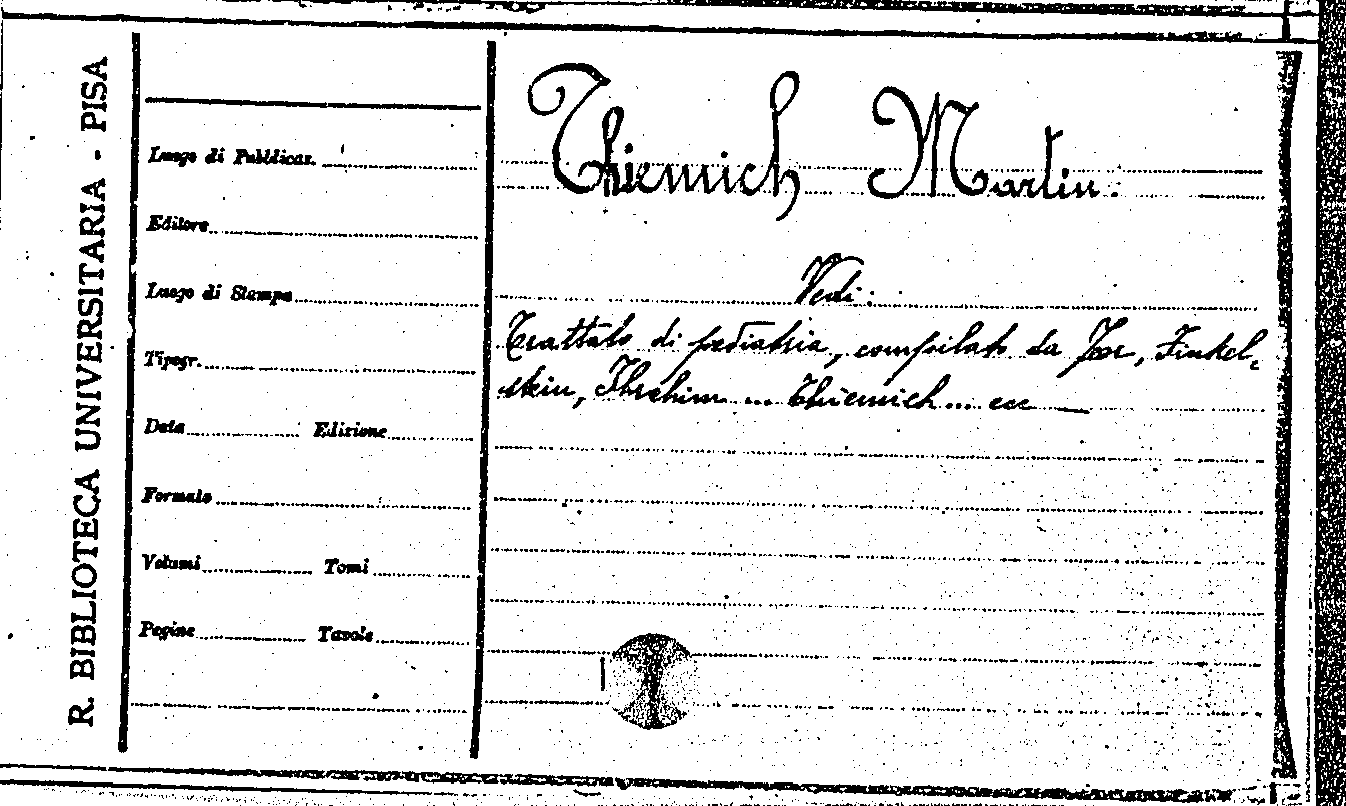 R. BIBLIOTECA UNIVERSITARIA - PISA
Luogo di Pubblicaz.
Editore
Luogo di Stampa
Tipogr.
Data Edizione
Formato
Volumi Tomi
Pagine Tavole
Thiemich Martin.
Vedi:
Trattato di pediatria, compilato da Feer, Finkel-
stein, Ibrahim ... Thiemich ... ecc